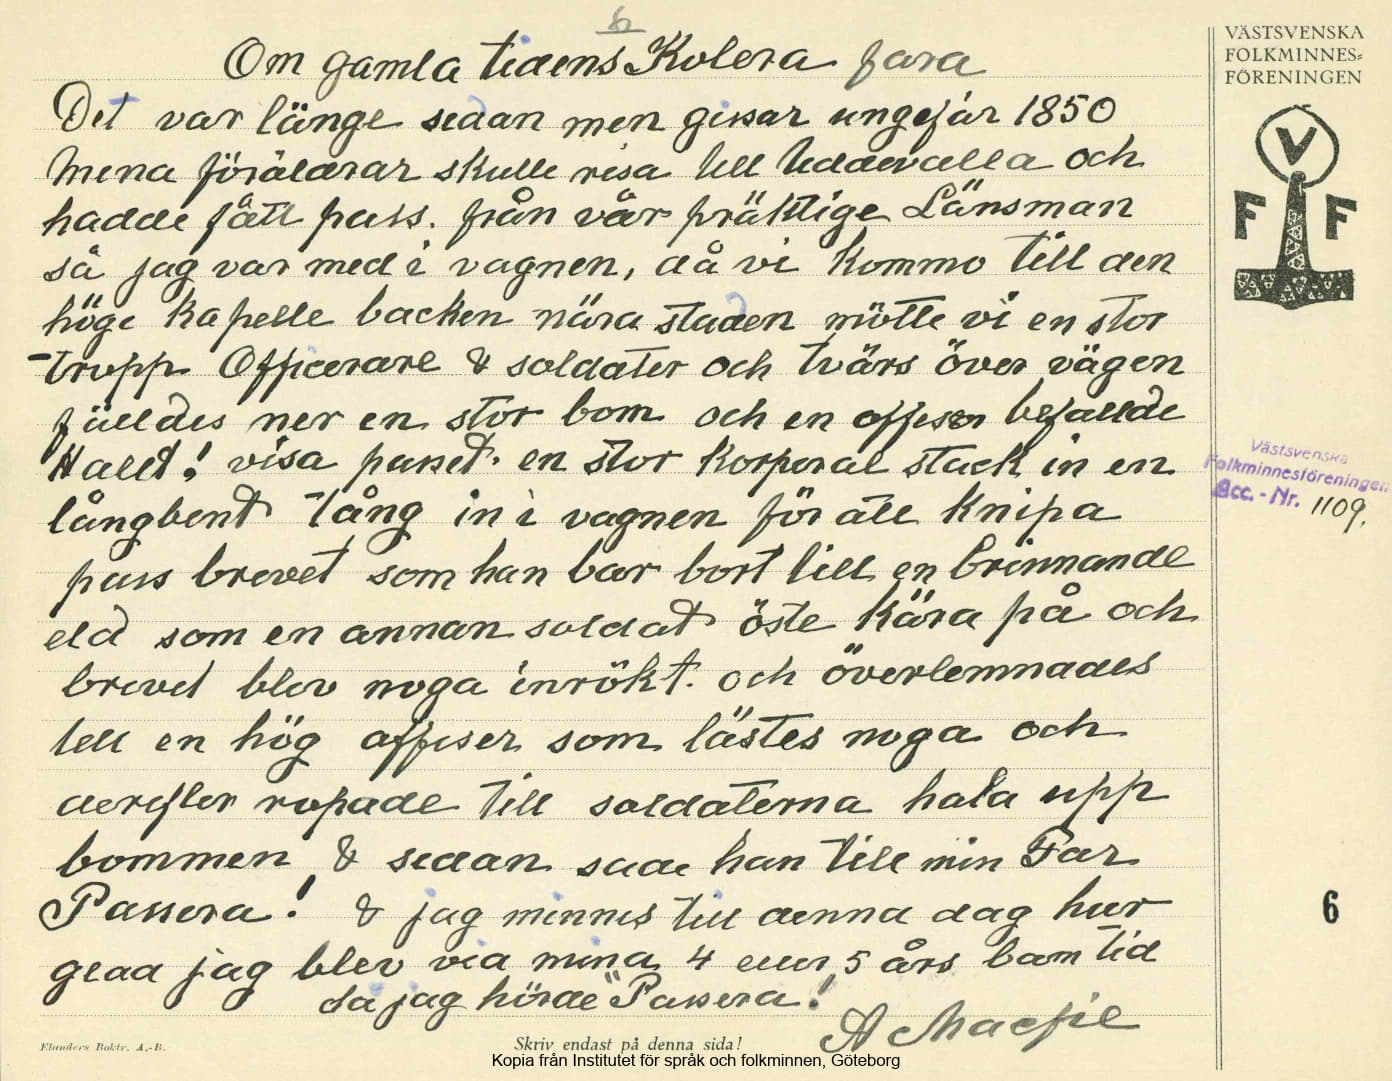 6
Om gamla tidens Kolera fara
Det var länge sedan men gissar ungefär 1850
Mina föräldrar skulle resa till Uddevalla och
hadde fått pass. från vår präktige Länsman
så jag var med i vagnen, då vi kommo till den
höge kapelle backen nära staden mötte vi en stor
tropp Officerare & soldater och tvärs över vägen
fälldes ner en stor bom och en offiser befallde
Halld! visa passet. en stor korporal stack in en
långbent tång in i vagnen för att knipa
pass brevet som han bar bort till en brinnande
eld som en annan soldat öste kåra på och
brevet blev noga inrökt. och överlemnades
till en hög offiser som lästes noga och
derefter ropade till soldaterna hala upp
bommen & sedan sade han till min Far
Passera! & jag minnes till denna dag hur
glad jag blev via mina 4 eller 5 års barn tid
då jag hörde "Passera!
A Macfie
VÄSTSVENSKA
FOLKMINNES=
FÖRENINGEN
V
F F
Västsvenska
Folkminnesföreningen
Acc. - Nr. 1109.
6
Elanders Boktr. A.-B.
Skriv endast på denna sida!
Kopia från Institutet för språk och folkminnen, Göteborg